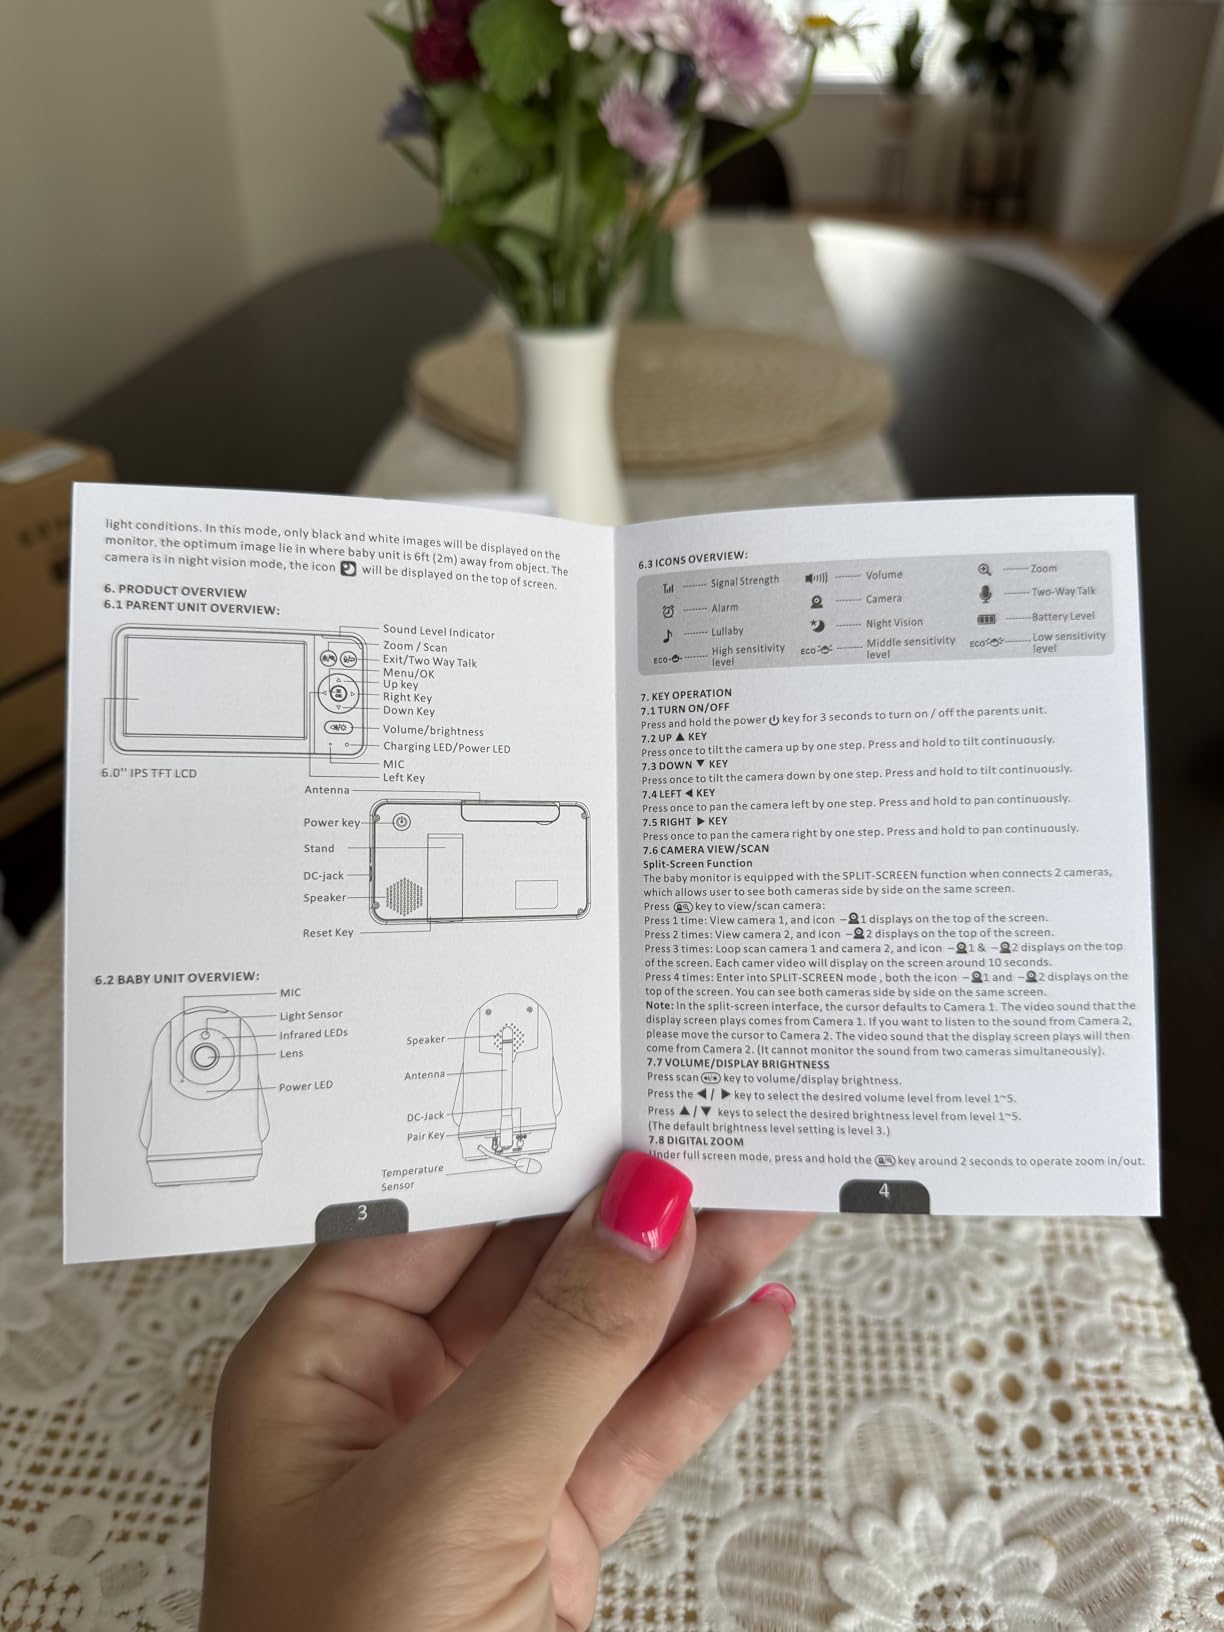 light conditions. In this mode, only black and white images will be displayed on the
monitor, the optimum image lie in where baby unit is 6ft (2m) away from object. The
camera is in night vision mode, the icon will be displayed on the top of screen.
6. PRODUCT OVERVIEW
6.1 PARENT UNIT OVERVIEW:
Sound Level Indicator
Zoom / Scan
Exit/Two Way Talk
Menu/OK
Up key
Right Key
Down Key
Volume/brightness
Charging LED/Power LED
MIC
Left Key
6.0'' IPS TFT LCD
Antenna
Power key
Stand
DC-jack
Speaker
Reset Key
6.2 BABY UNIT OVERVIEW:
MIC
Light Sensor
Infrared LEDs
Lens
Power LED
Speaker
Antenna
DC-Jack
Pair Key
Temperature
Sensor
3
6.3 ICONS OVERVIEW:
Signal Strength Volume Zoom
Alarm Camera Two-Way Talk
Lullaby Night Vision Battery Level
ECO High sensitivity level ECO Middle sensitivity level ECO Low sensitivity level
7. KEY OPERATION
7.1 TURN ON/OFF
Press and hold the power key for 3 seconds to turn on / off the parents unit.
7.2 UP ▲ KEY
Press once to tilt the camera up by one step. Press and hold to tilt continuously.
7.3 DOWN ▼ KEY
Press once to tilt the camera down by one step. Press and hold to tilt continuously.
7.4 LEFT ◀ KEY
Press once to pan the camera left by one step. Press and hold to pan continuously.
7.5 RIGHT ▶ KEY
Press once to pan the camera right by one step. Press and hold to pan continuously.
7.6 CAMERA VIEW/SCAN
Split-Screen Function
The baby monitor is equipped with the SPLIT-SCREEN function when connects 2 cameras,
which allows user to see both cameras side by side on the same screen.
Press key to view/scan camera:
Press 1 time: View camera 1, and icon –1 displays on the top of the screen.
Press 2 times: View camera 2, and icon –2 displays on the top of the screen.
Press 3 times: Loop scan camera 1 and camera 2, and icon –1 & –2 displays on the top
of the screen. Each camer video will display on the screen around 10 seconds.
Press 4 times: Enter into SPLIT-SCREEN mode , both the icon –1 and –2 displays on the
top of the screen. You can see both cameras side by side on the same screen.
Note: In the split-screen interface, the cursor defaults to Camera 1. The video sound that the
display screen plays comes from Camera 1. If you want to listen to the sound from Camera 2,
please move the cursor to Camera 2. The video sound that the display screen plays will then
come from Camera 2. (It cannot monitor the sound from two cameras simultaneously).
7.7 VOLUME/DISPLAY BRIGHTNESS
Press scan key to volume/display brightness.
Press the ◀ / ▶ key to select the desired volume level from level 1~5.
Press ▲ / ▼ keys to select the desired brightness level from level 1~5.
(The default brightness level setting is level 3.)
7.8 DIGITAL ZOOM
Under full screen mode, press and hold the key around 2 seconds to operate zoom in/out.
4